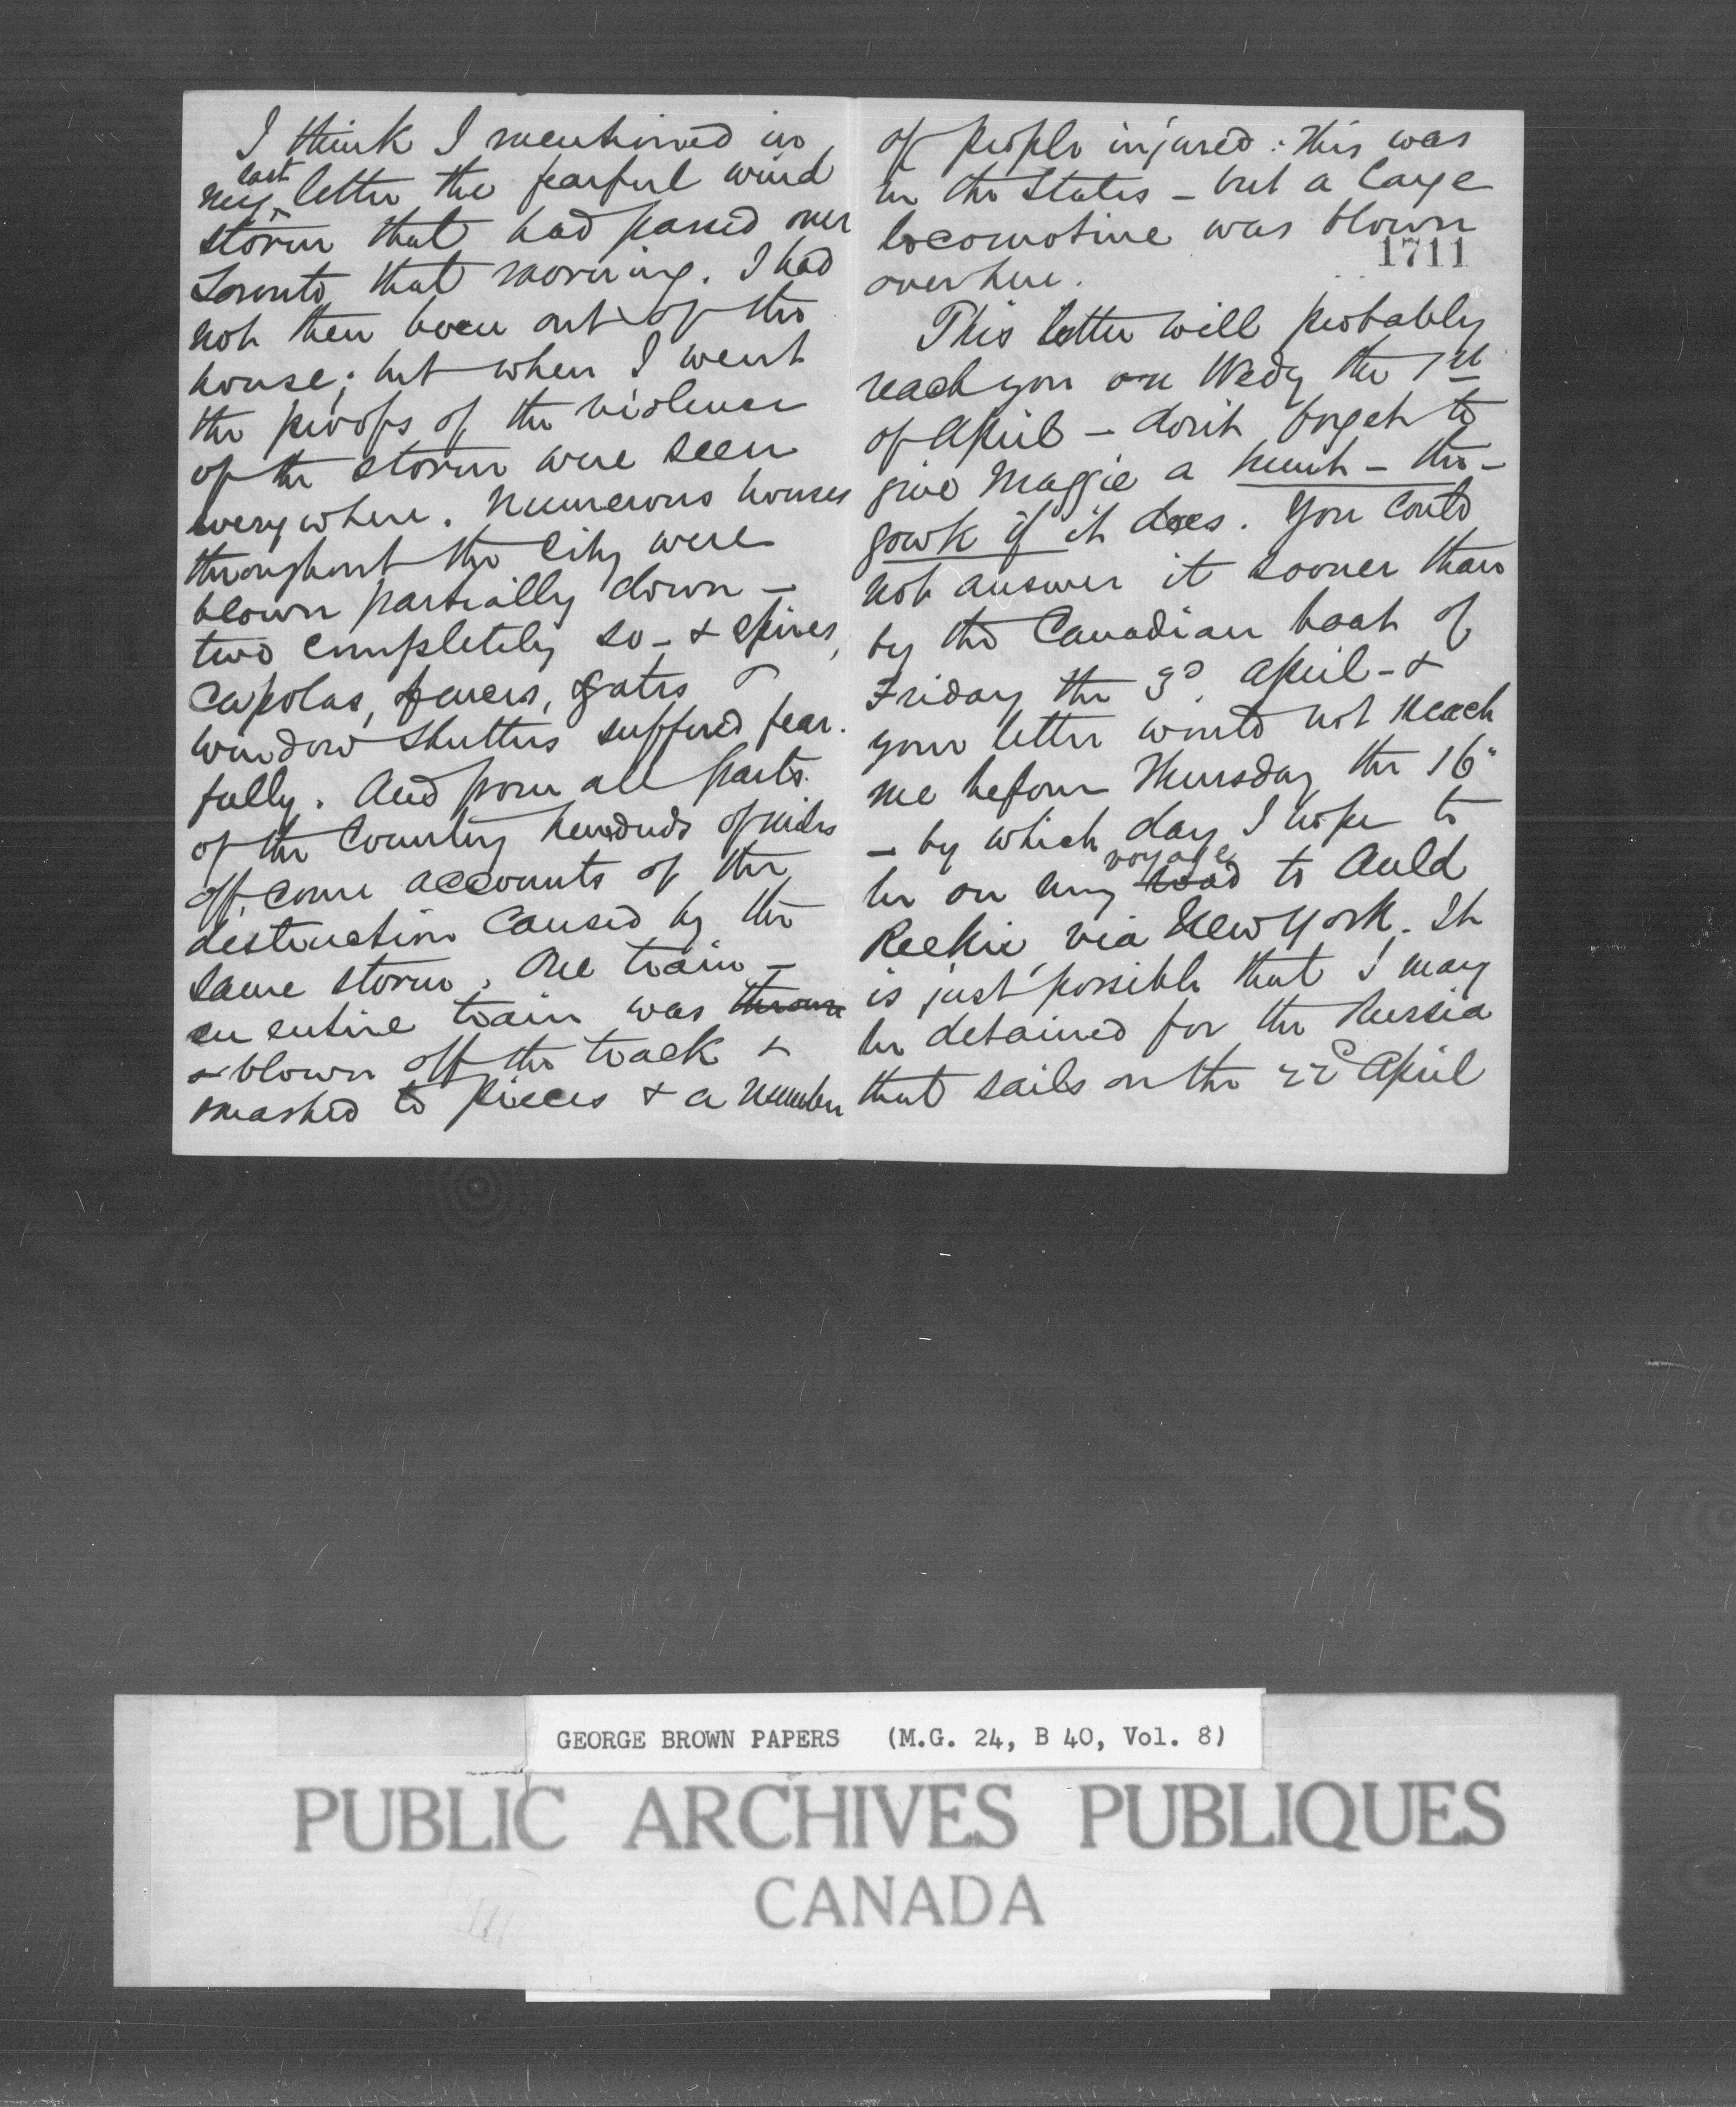 I think I mentioned in
my last letter the fearful wind
storm that had passed over
Toronto that morning. I had
not then been out of the
house; but when I went
the proofs of the violence
of the storm were seen
everywhere. Numerous houses
throughout the City were
blown partially down –
two completely so – & spires,
cupolas, fences, gates &
window shutters suffered fear-
fully. And from all parts
of the Country hundreds of miles
off, come accounts of the
destruction caused by the
same storm. One train –
an entire train was thrown
blown off the track &
smashed to pieces & a number
of people injured: this was
in the States – but a large
locomotive was blown
1711
over here.
This letter will probably
reach you on Wedy the 1st
of April – don't forget to
give Maggie a hunt – the –
gowk if it does. You could
not answer it sooner than
by the Canadian boat of
Friday the 3d April – &
your letter would not reach
me before Thursday the 16"
– by which day I hope to
be on my road voyage to Auld
Reekie via New York. It
is just possible that I may
be detained for the Russia
that sails on the 22d April
GEORGE BROWN PAPERS (M.G. 24, B 40, Vol. 8)
PUBLIC ARCHIVES PUBLIQUES
CANADA